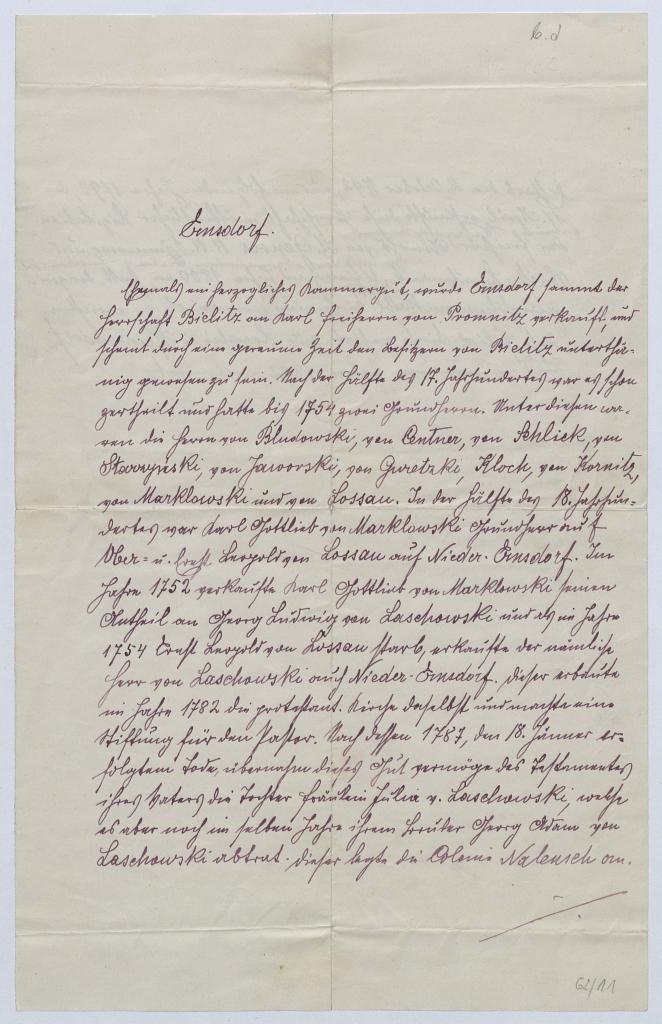 6.d
Ernsdorf.
Ehemals ein herzogliches Kammergut, wurde Ernsdorf sammt der
Herrschaft Bielitz an Karl Freiherrn von Promnitz verkauft, und
scheint durch eine geraume Zeit den Besitzern von Bielitz unterthä-
nig gewesen zu sein. Nach der Hälfte des 17. Jahrhundertes war es schon
zertheilt und hatte bis 1754 zwei Grundherrn. Unter diesen wa-
ren die Herrn von Bludowski, von Centner, von Schlick, von
von Jaworski, von Guretzki, Kloch, von Kornitz,
von Marklowski und von Lossau. In der Hälfte des 18. Jahrhun-
dertes war Karl Gottlieb von Marklowski Grundherr auf
Ober- u. Ernst Leopold von Lossau auf Nieder-Ernsdorf. Im
Jahre 1752 verkaufte Karl Gottlieb von Marklowski seinen
Antheil an Georg Ludwig von Laschowski und als im Jahre
1754 Ernst Leopold von Lossau starb, erkaufte der nämliche
Herr von Laschowski auch Nieder-Ernsdorf. Dieser erbaute
im Jahre 1782 die protestant. Kirche daselbst und machte eine
Stiftung für den Pastor. Nach dessen 1787, den 18. Jänner er-
folgtem Tode, übernahm dieses Gut vermöge des Testamentes
ihres Vaters die Tochter Fräulein Julia v. Laschowski, welche
es aber noch im selben Jahre ihrem Bruder Georg Adam von
Laschowski abtrat. Dieser legte die Colonie Nalensch an.
62/11